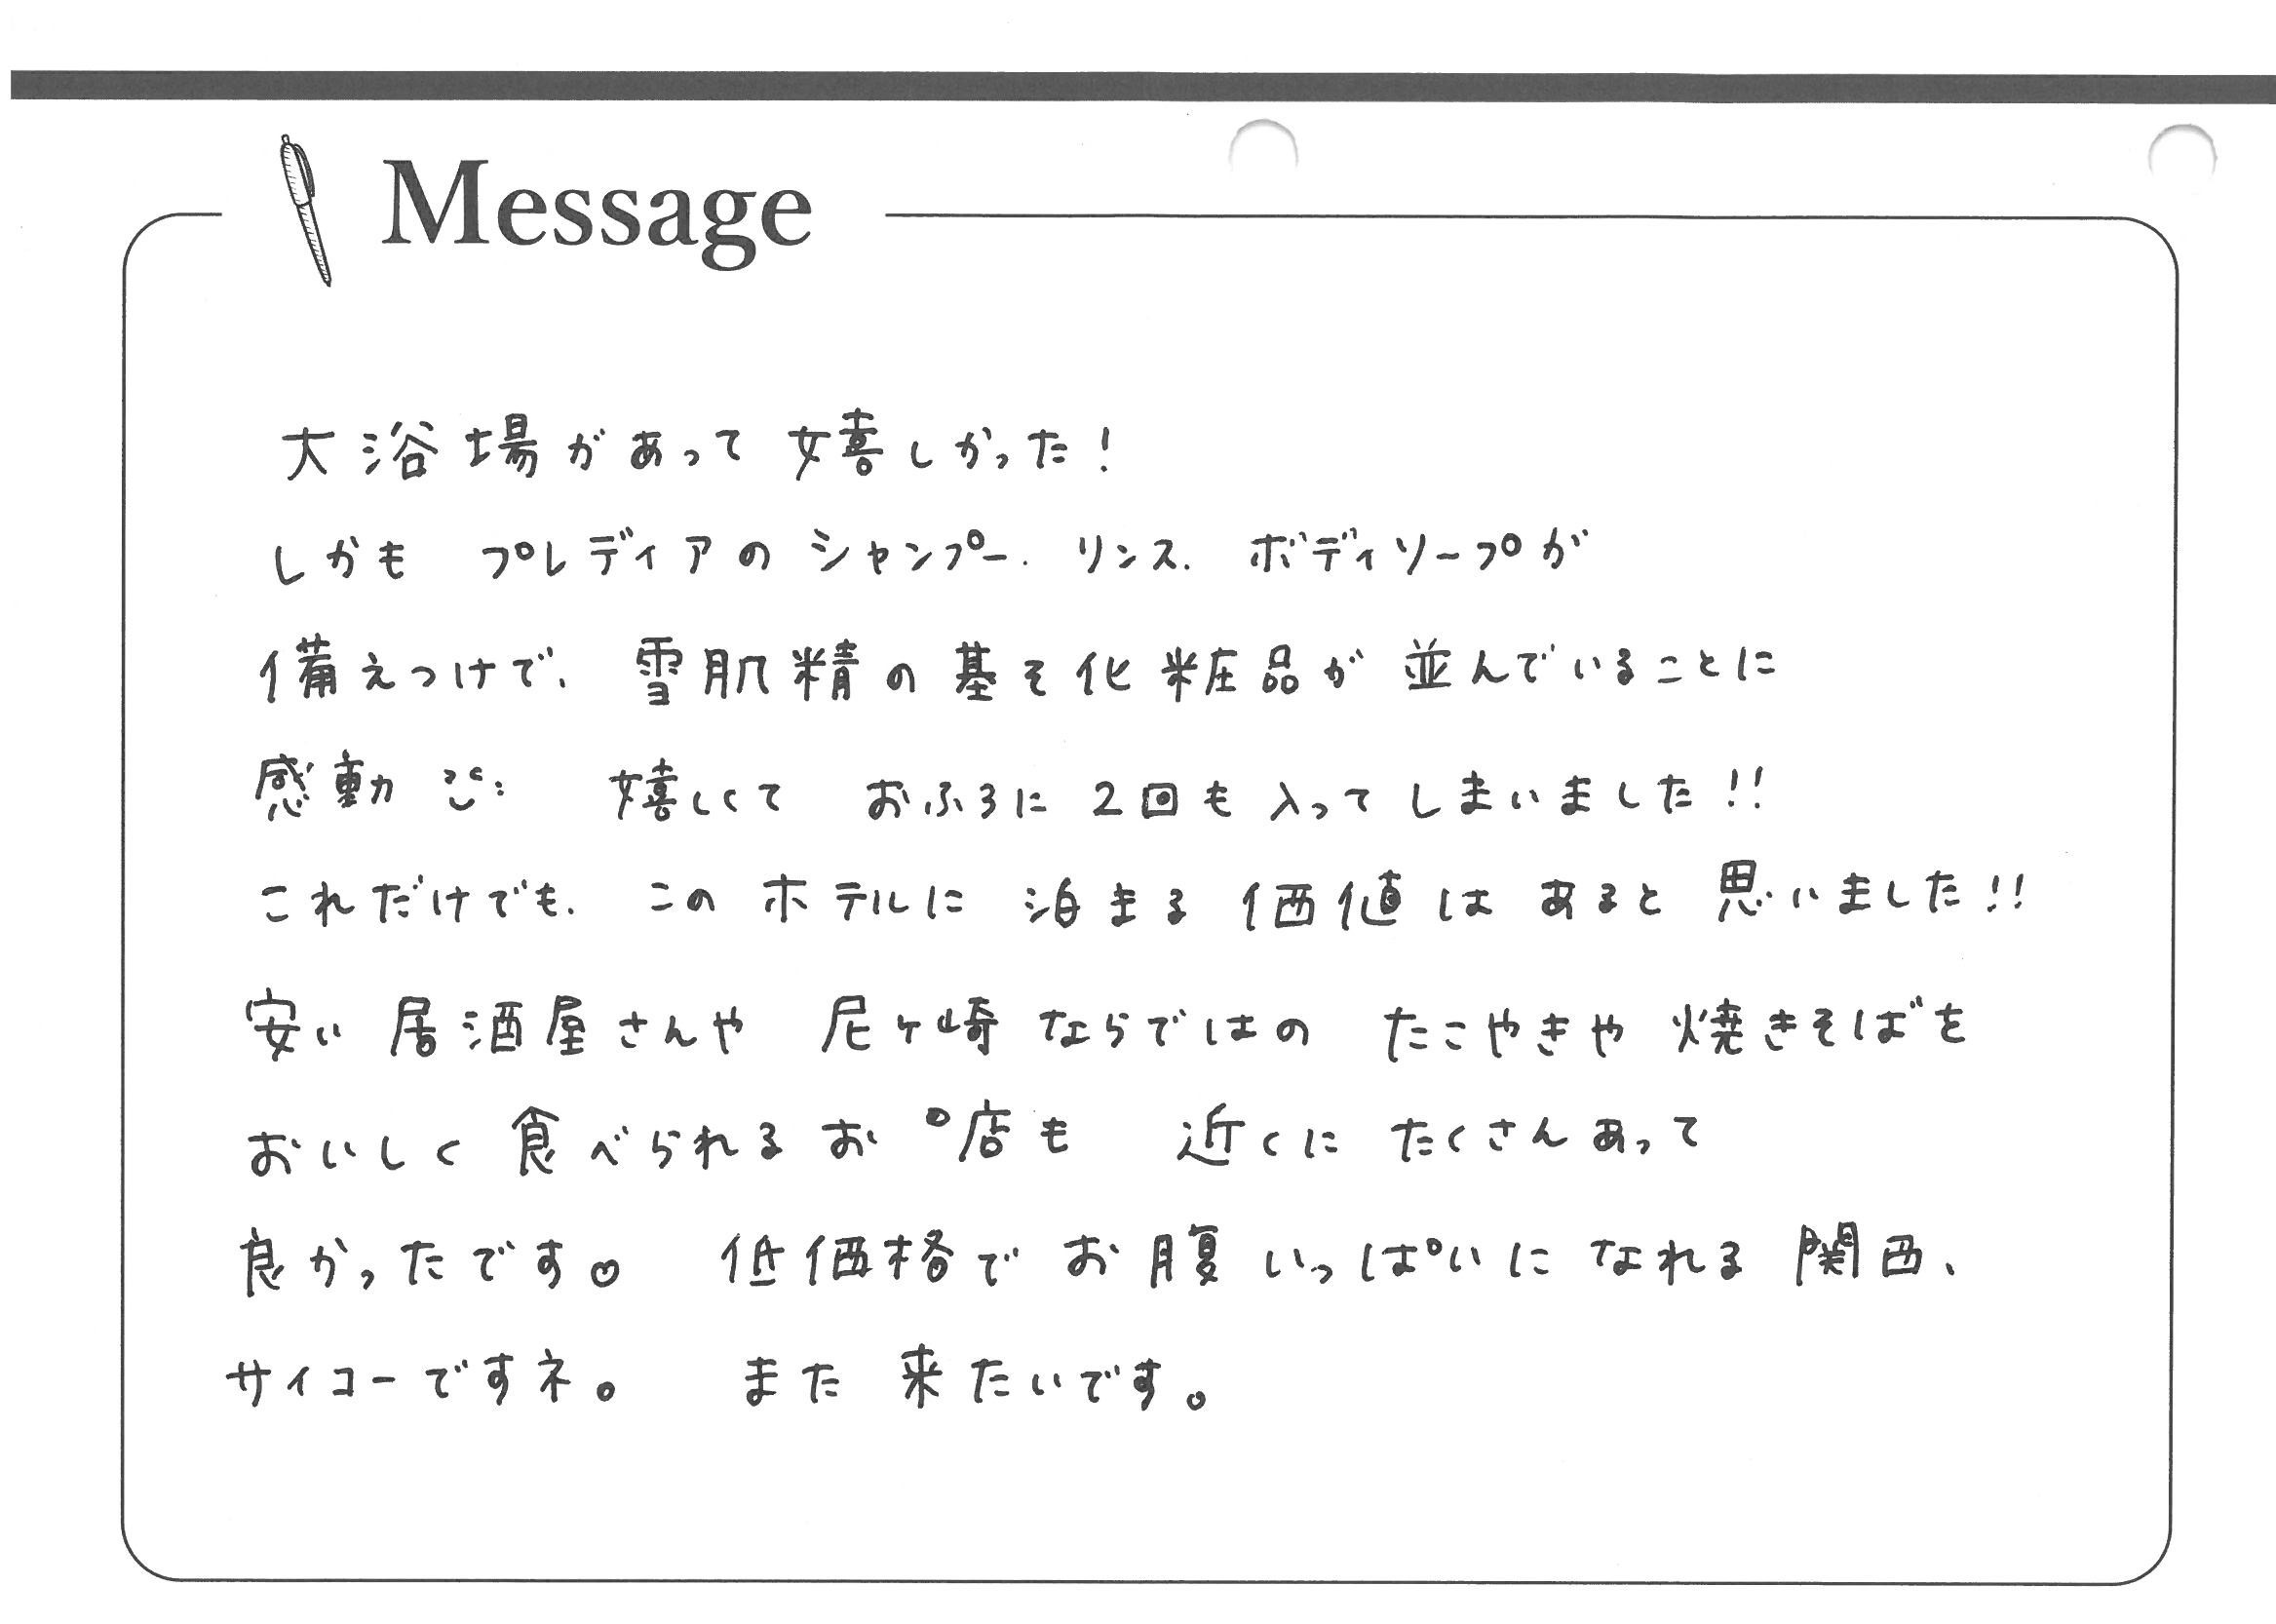 Message
大浴場があって嬉しかった!
しかも プレディアの シャンプー. リンス. ボディソープが
備えつけで、雪肌精の基そ化粧品が並んでいることに
感動 嬉しくて おふろに 2回も入ってしまいました!!
これだけでも、このホテルに 泊まる価値は あると思いました!!
安い居酒屋さんや 尼ヶ崎ならではの たこやきや焼きそばを
おいしく食べられるお店も 近くにたくさんあって
良かったです。 低価格でお腹いっぱいになれる関西、
サイコーですネ。 また来たいです。